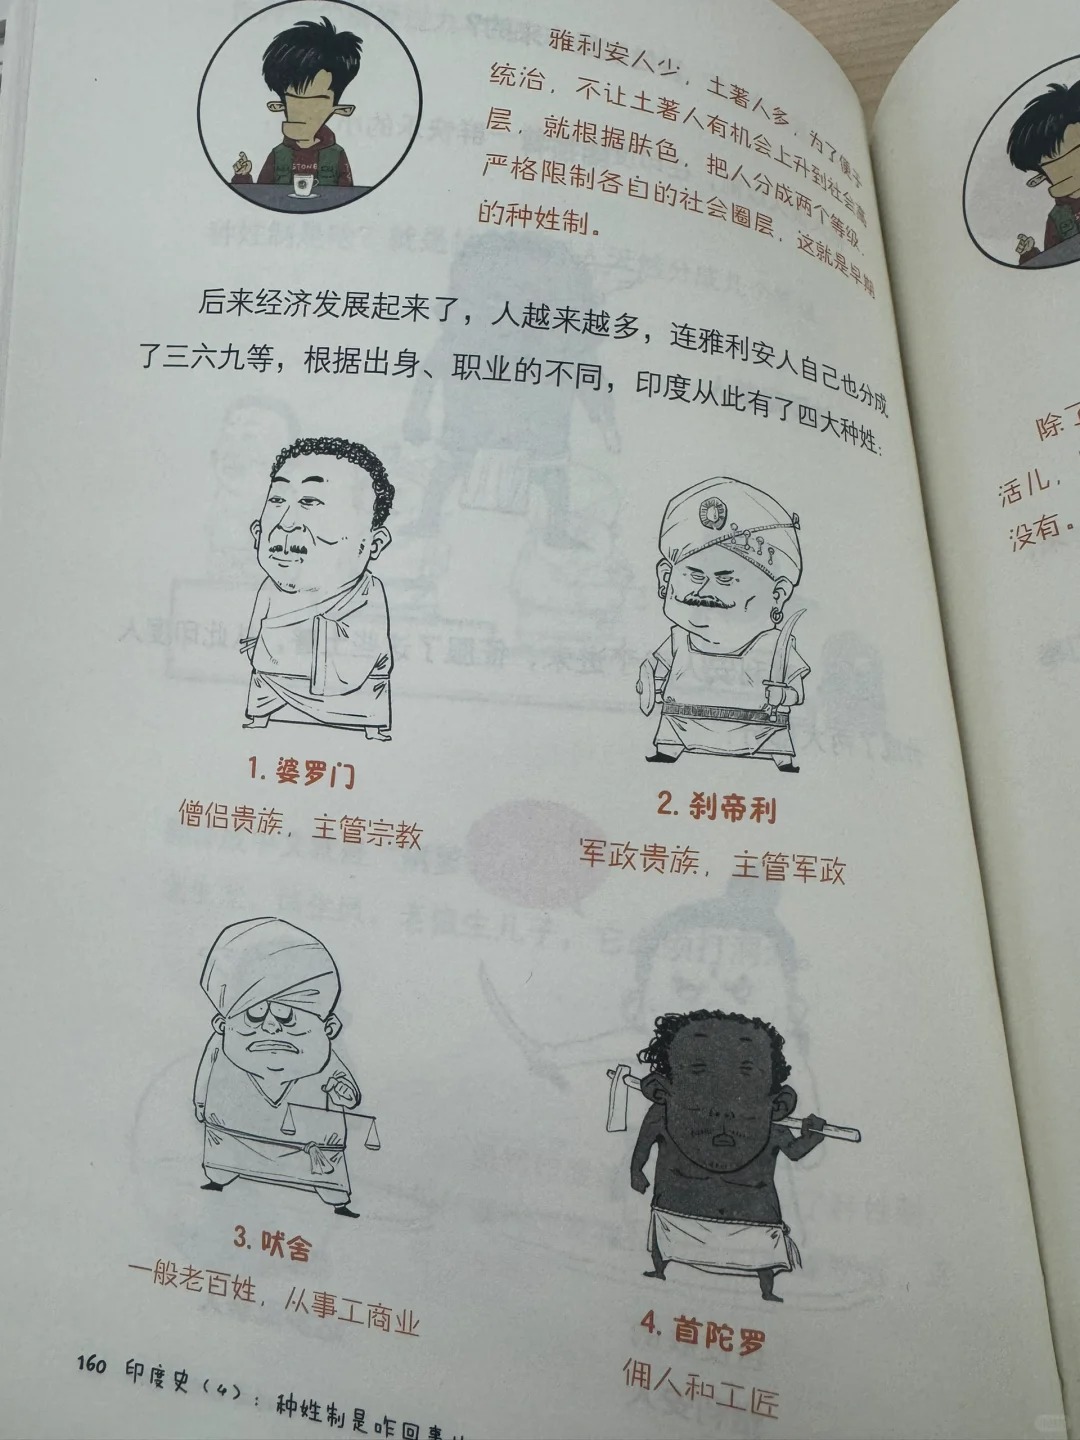 雅利安人少，土著人多，为了便于
统治，不让土著人有机会上升到社会高
层，就根据肤色，把人分成两个等级，
严格限制各自的社会圈层，这就是早期
的种姓制。
后来经济发展起来了，人越来越多，连雅利安人自己也分成
了三六九等，根据出身、职业的不同，印度从此有了四大种姓：
1. 婆罗门
僧侣贵族，主管宗教
2. 刹帝利
军政贵族，主管军政
3. 吠舍
一般老百姓，从事工商业
4. 首陀罗
佣人和工匠
160 印度史（4）：种姓制是咋回事
STONE
除了
活儿，
没有。